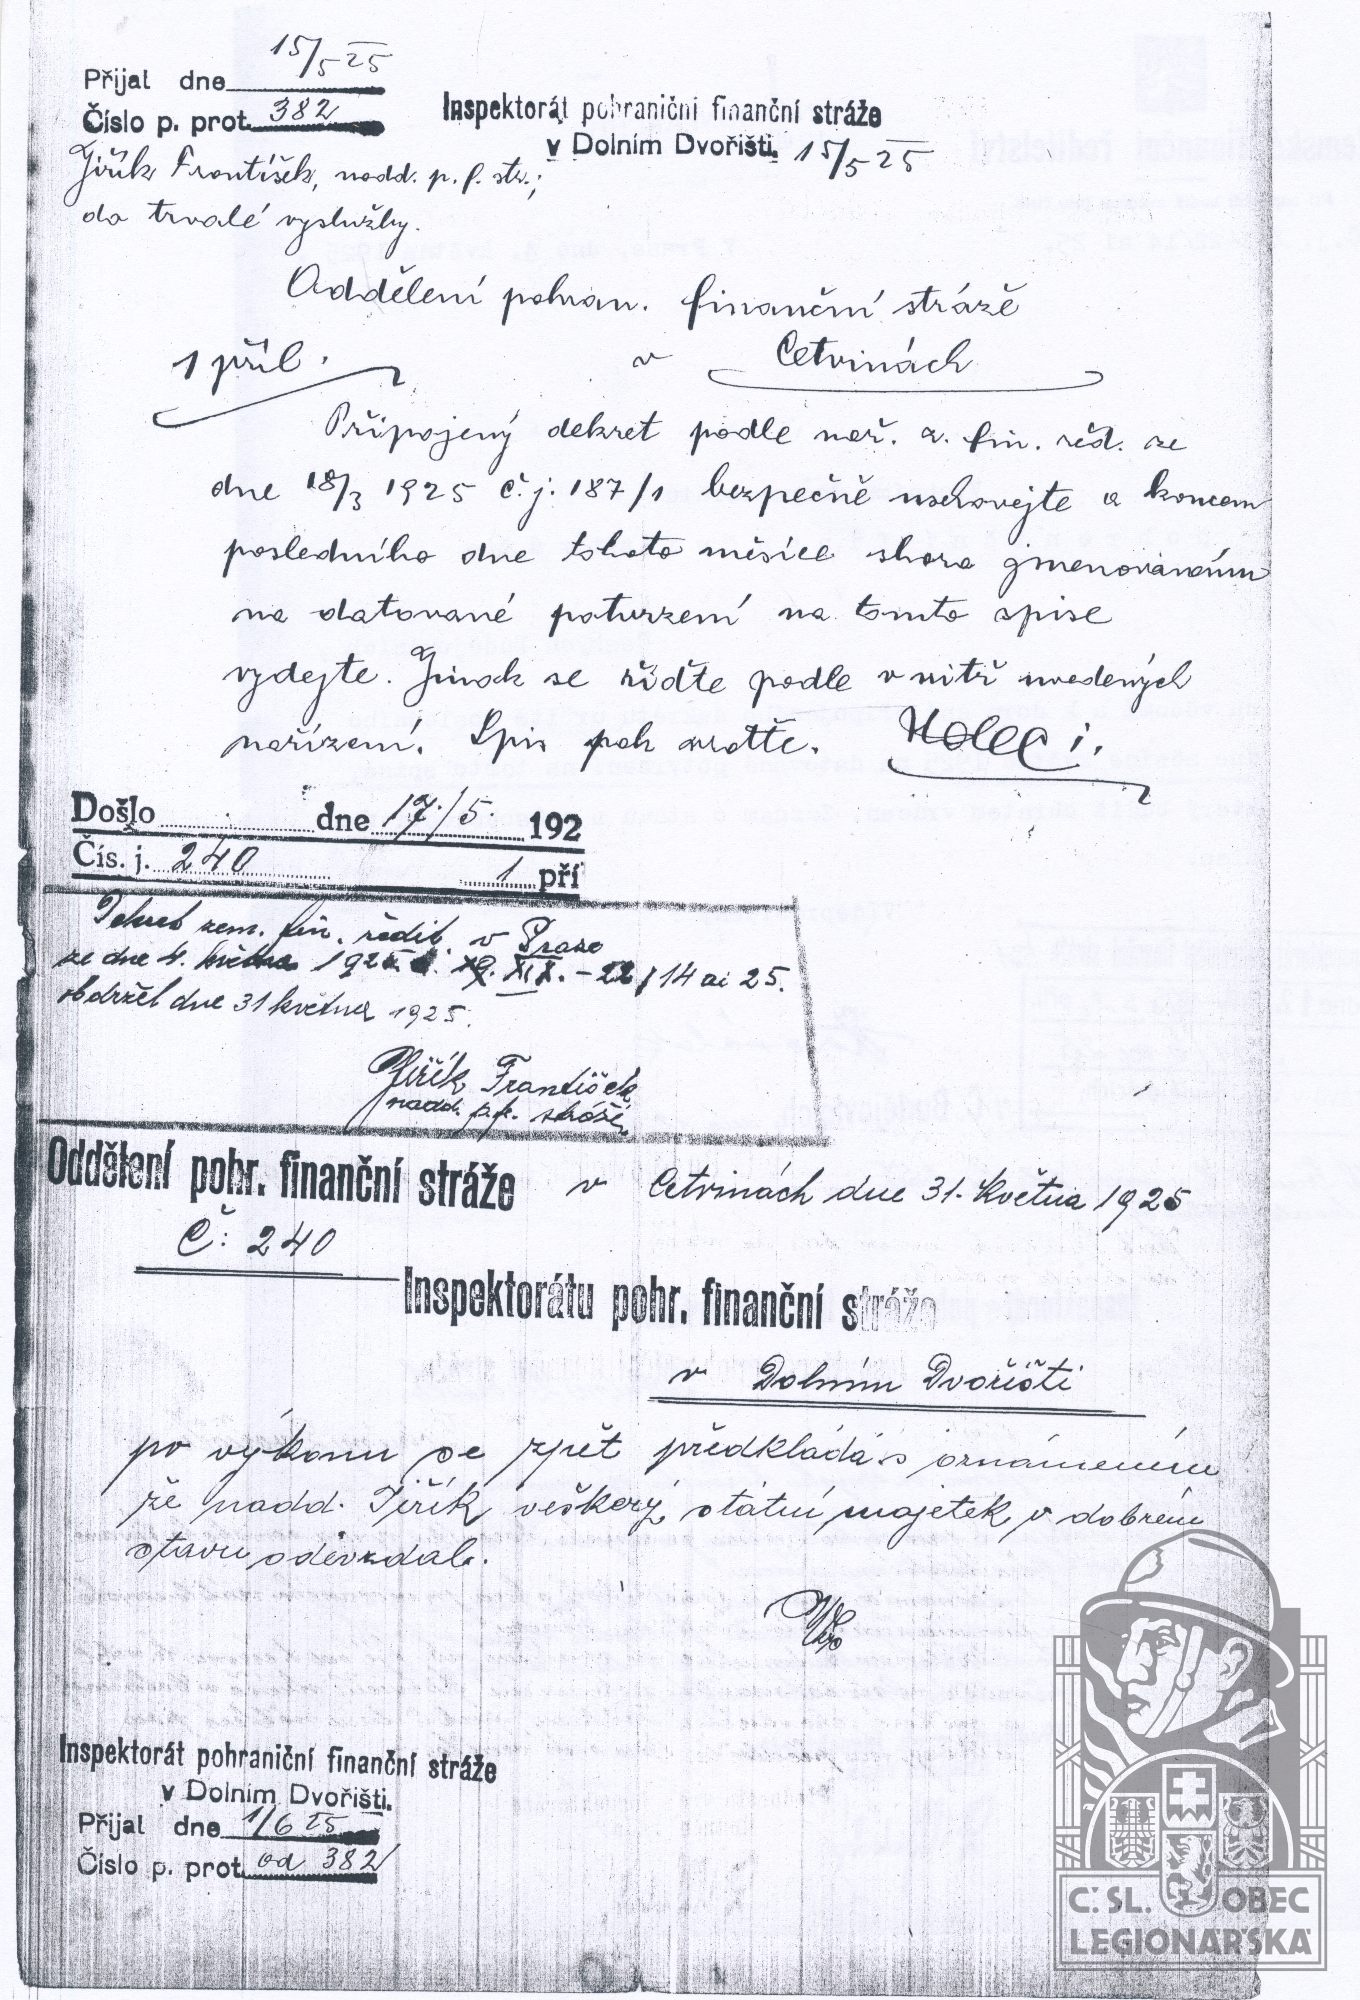 Přijal dne 15/5 25
Číslo p. prot. 382
Inspektorát pohraniční finanční stráže
v Dolním Dvořišti. 15/5 25
Jiřík František, nadd. p. f. str.;
do trvalé výslužby.
Oddělení pohran. finanční stráže
1 příl. v Cetvinách
Připojený dekret podle nař. z. fin. řed. ze
dne 18/3 1925 č. j. 187/1 bezpečně uschovejte a koncem
posledního dne tohoto měsíce shora jmenovanému
na datované potvrzení na tomto spise
vydejte. Jinak se řiďte podle v nitř uvedených
nařízení. Spis pak vraťte. Holec i.
Došlo dne 17/5. 192
Čís. j. 240 1 pří
Dekret zem. fin. ředit. v Praze
ze dne 4. května 1925 č. XIX. - 22/14 ai 25.
obdržel dne 31 května 1925.
Jiřík František
nadd. p.f. stráže
Oddělení pohr. finanční stráže v Cetvinách dne 31. Května 1925
Č: 240
Inspektorátu pohr. finanční stráže
v Dolním Dvořišti
po výkonu se zpět předkládá s oznámením
že nadd. Jiřík veškerý státní majetek v dobrém
stavu odevzdal.
Inspektorát pohraniční finanční stráže
v Dolním Dvořišti.
Přijal dne 1/6 25
Číslo p. prot. od 382
Č. SL. OBEC
LEGIONÁŘSKÁ